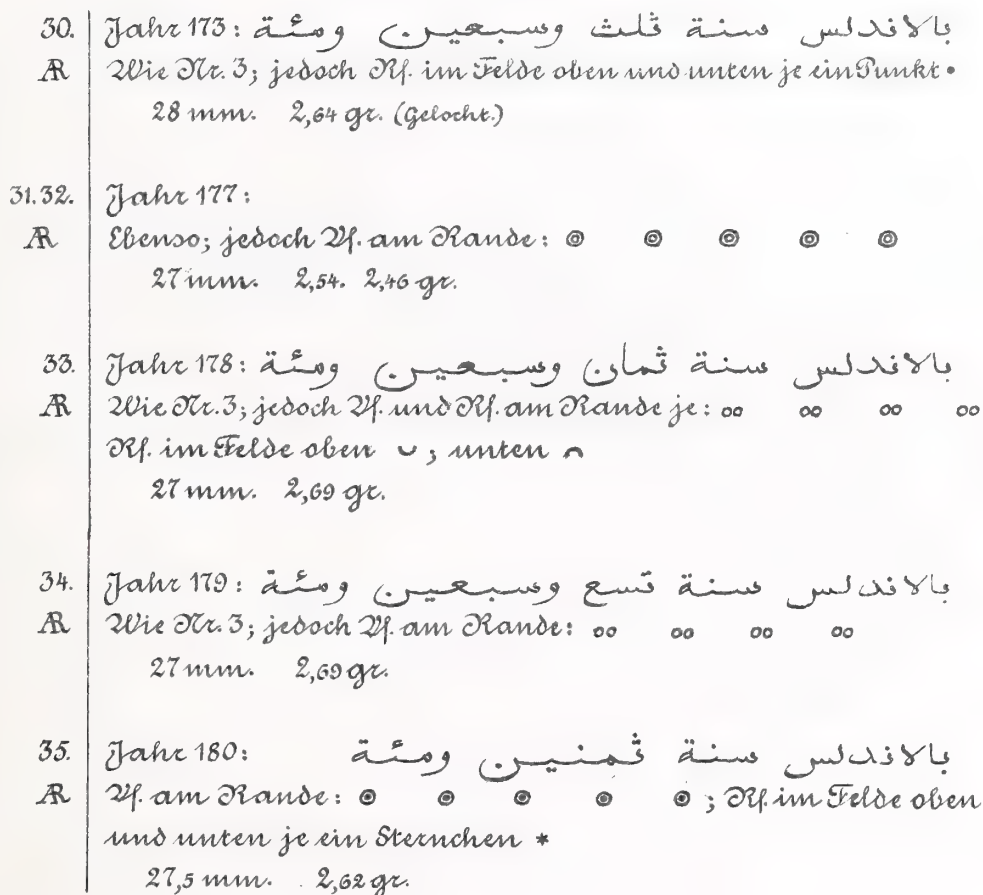 30. Jahr 173: بالاندلس سنة ثلث وسبعين ومئة
AR Wie Nr. 3; jedoch Rf. im Felde oben und unten je ein Punkt •
28 mm. 2,64 gr. (Gelocht.)
31.32. Jahr 177:
AR Ebenso; jedoch Vf. am Rande: ◎ ◎ ◎ ◎ ◎
27 mm. 2,54. 2,46 gr.
33. Jahr 178: بالاندلس سنة ثمان وسبعين ومئة
AR Wie Nr. 3; jedoch Vf. und Rf. am Rande je: oo oo oo oo
Rf. im Felde oben ᴗ; unten ᴖ
27 mm. 2,69 gr.
34. Jahr 179: بالاندلس سنة تسع وسبعين ومئة
AR Wie Nr. 3; jedoch Vf. am Rande: oo oo oo oo
27 mm. 2,69 gr.
35. Jahr 180: بالاندلس سنة ثمنين ومئة
AR Vf. am Rande: ◎ ◎ ◎ ◎ ◎; Rf. im Felde oben
und unten je ein Sternchen *
27,5 mm. 2,62 gr.